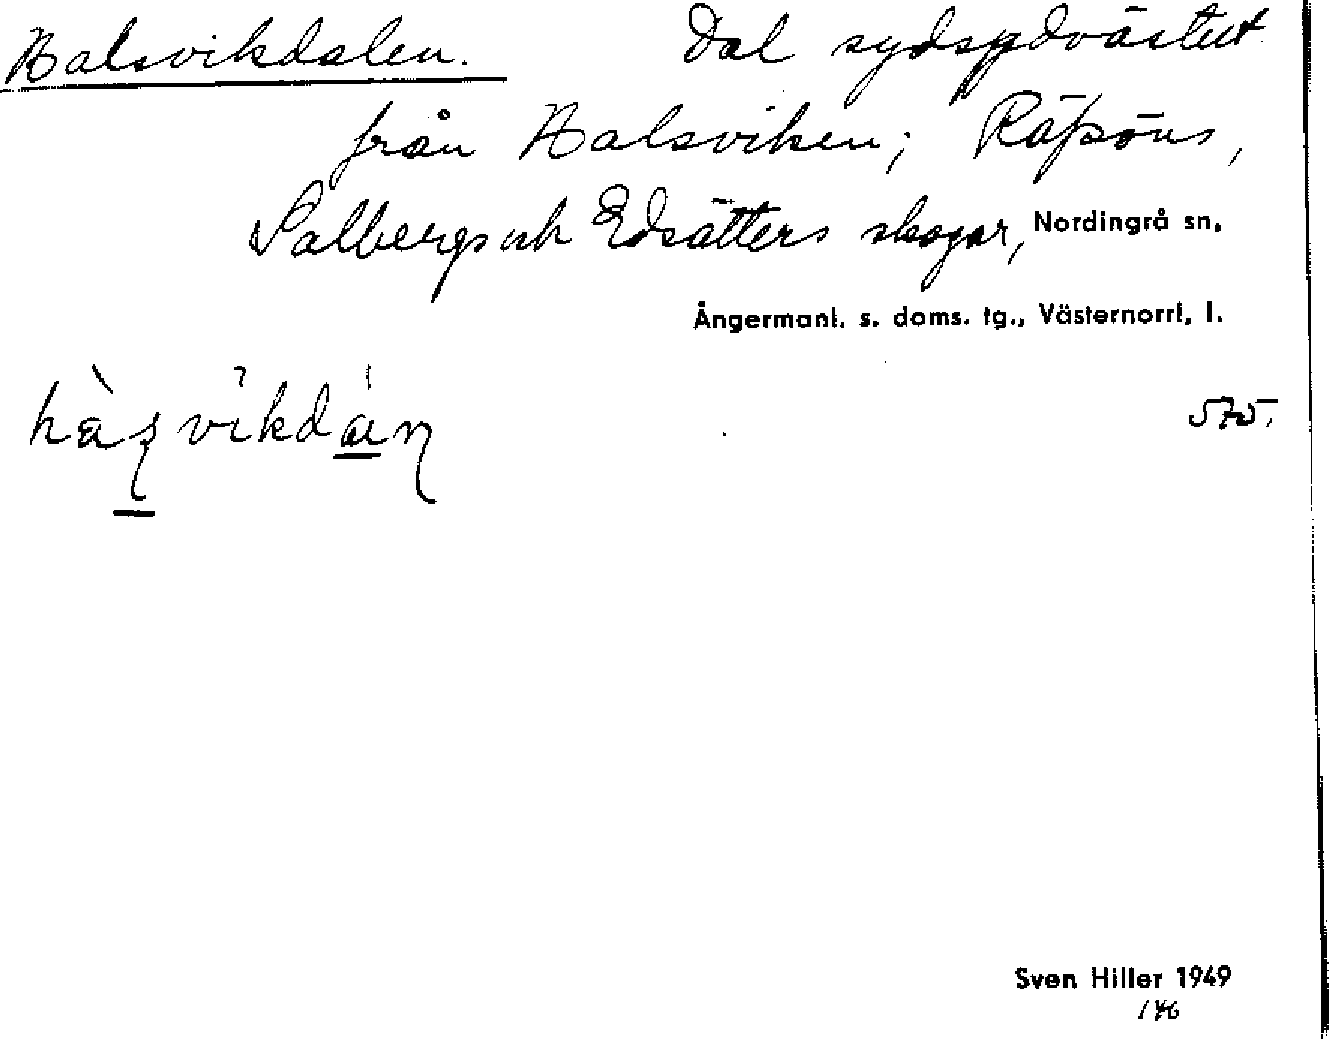 Halsvikdalen. Dal sydsydväst ut
från Halsviken; Räpsöns,
Salbergs och Edsätters skogar, Nordingrå sn,
Ångermanl. s. doms. tg., Västernorrl, l.
575.
Sven Hiller 1949
146